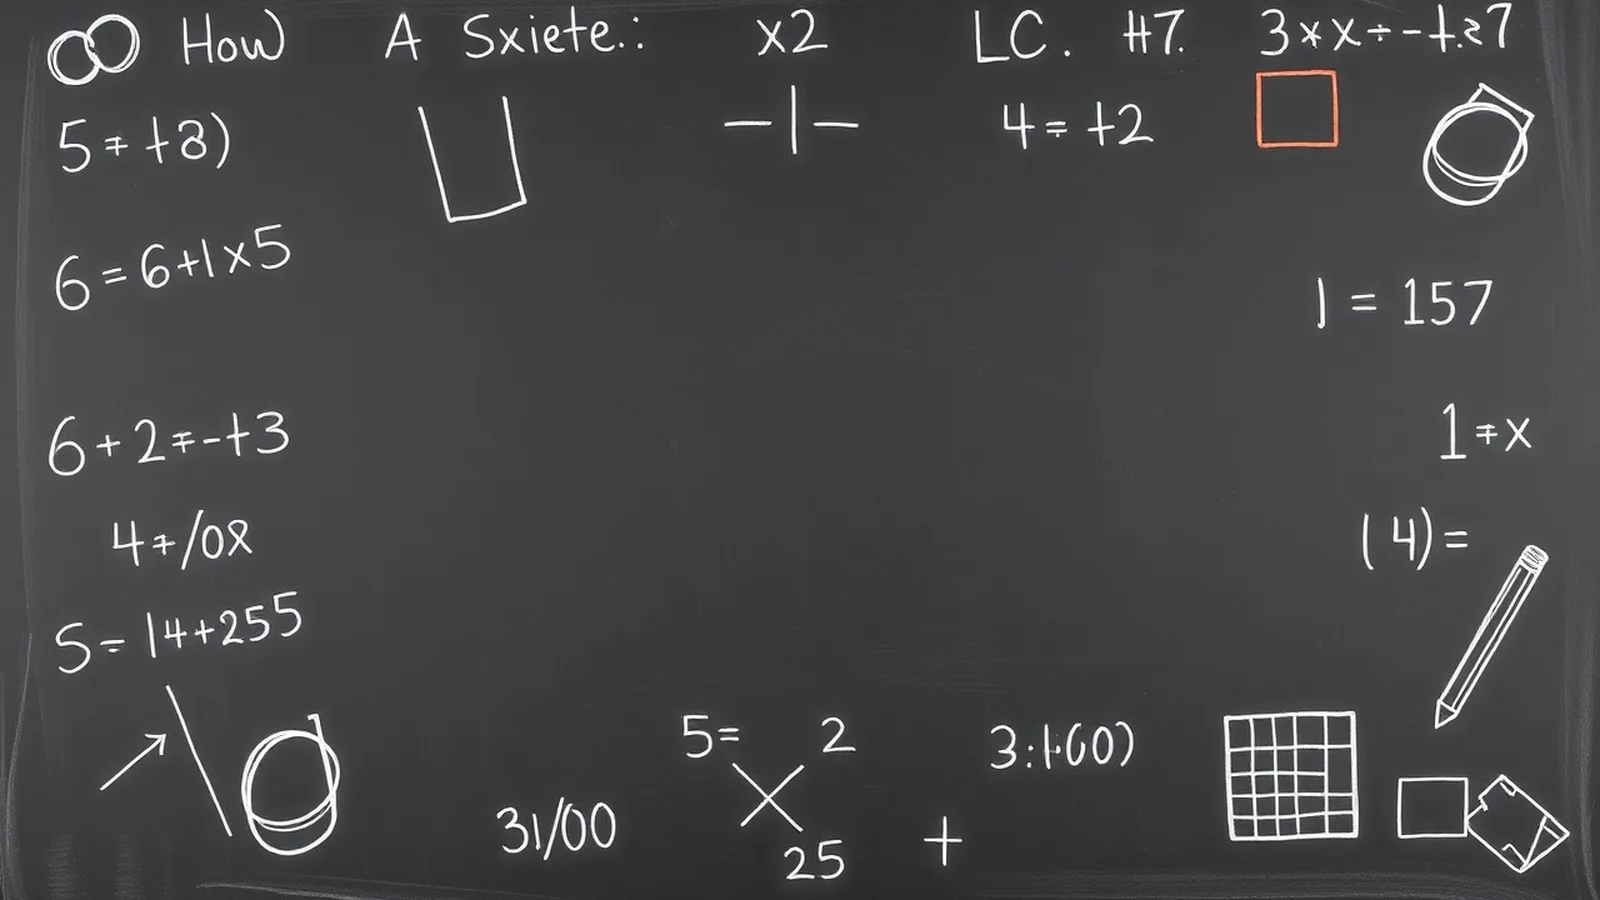 How A Sxiete.: x2 LC. #7. 3xx÷-t.27
5=+8)
4=+2
6=6+1x5
1=157
6+2=-+3
1=x
4=/08
(4)=
5=14+255
5= 2
3:1·(00)
31/00
25 +